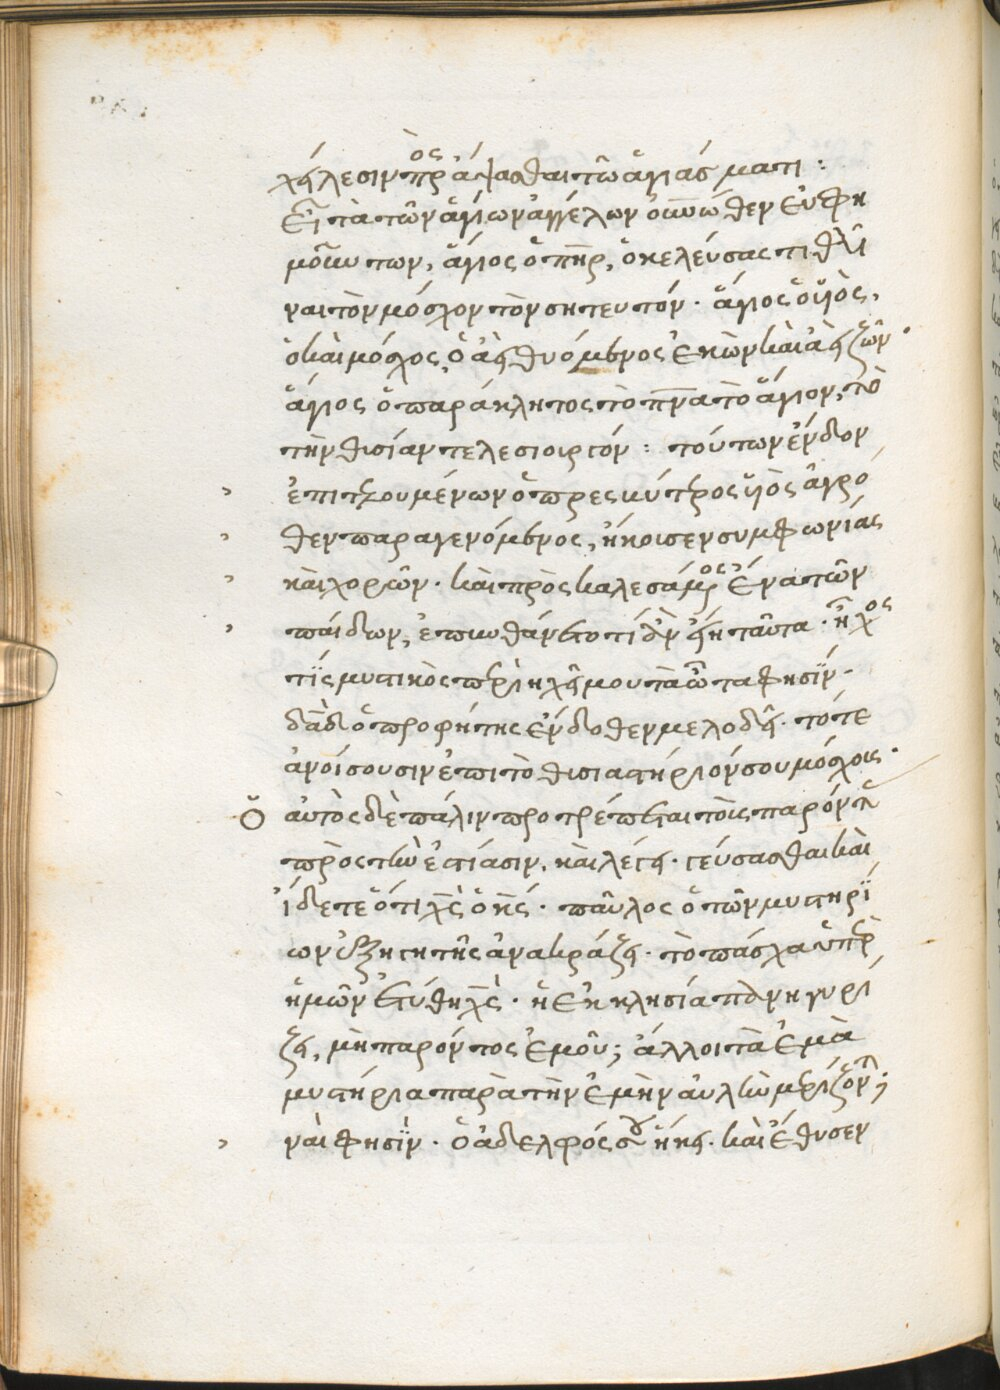 χείλεσιν πρὸς ἅψασθαι τῶ ἁγιάσματι :
Εἶτα τῶν ἁγίων ἀγγέλων ἄνωθεν εὐφη
μούντων, ἅγιος ὁ πηρ, ὁ κελεύσας τιθῆ
ναι τὸν μόσχον τὸν σητευτόν · ἅγιος ὁ υἱὸς,
ὁ καὶ μόσχος, ὁ ἀεὶ θυόμενος ἑκὼν καὶ ἀεὶ ζῶν ·
ἅγιος ὁ παράκλητος τὸ πνα τὸ ἅγιον, τὸ
τὴν θισίαν τελεσιουργόν : τούτων ἔνδον
ἐπιτελουμένων ὁ πρεσβύτερος υἱὸς ἀγρό
θεν παραγενόμενος, ἤκουσεν συμφωνίας
καὶ χορῶν · καὶ προσκαλεσάμενος ἕνα τῶν
παίδων, ἐπυνθάνετο τί ἂν εἴη ταῦτα · ἦχος
τίς μυστικὸς περιηχεῖ μου τὰ ὦτα φησίν ·
δᾶδ ὁ προφήτης ἔνδοθεν μελοδεῖ · τότε
ἀνοίσουσιν ἐπι τὸ θισιαστήριόν σου μόσχους ·
Ὁ αὐτὸς δὲ πάλιν προτρέπεται τοῖς παρόντας
πρὸς τὴν ἑστίασιν, καὶ λέγει · γεύσασθαι καὶ
ἴδετε ὅτι χς ὁ κς · παῦλος ὁ τῶν μυστηρί
ων ἐξηγητὴς ἀνακράζει · τὸ πάσχα ὑπὲρ
ἡμῶν ἐτύθη χς · ἡ ἐκκλησία πανηγυρί
ζει, μὴ παρόντος ἐμοῦ ; ἄλλοι τὰ ἐμὰ
μυστήρια παρὰ τὴν ἐμὴν αὐλὴν μερίζονται ;
ναὶ φησίν · ὁ ἀδελφός σου ἥκει · καὶ ἔθυσεν